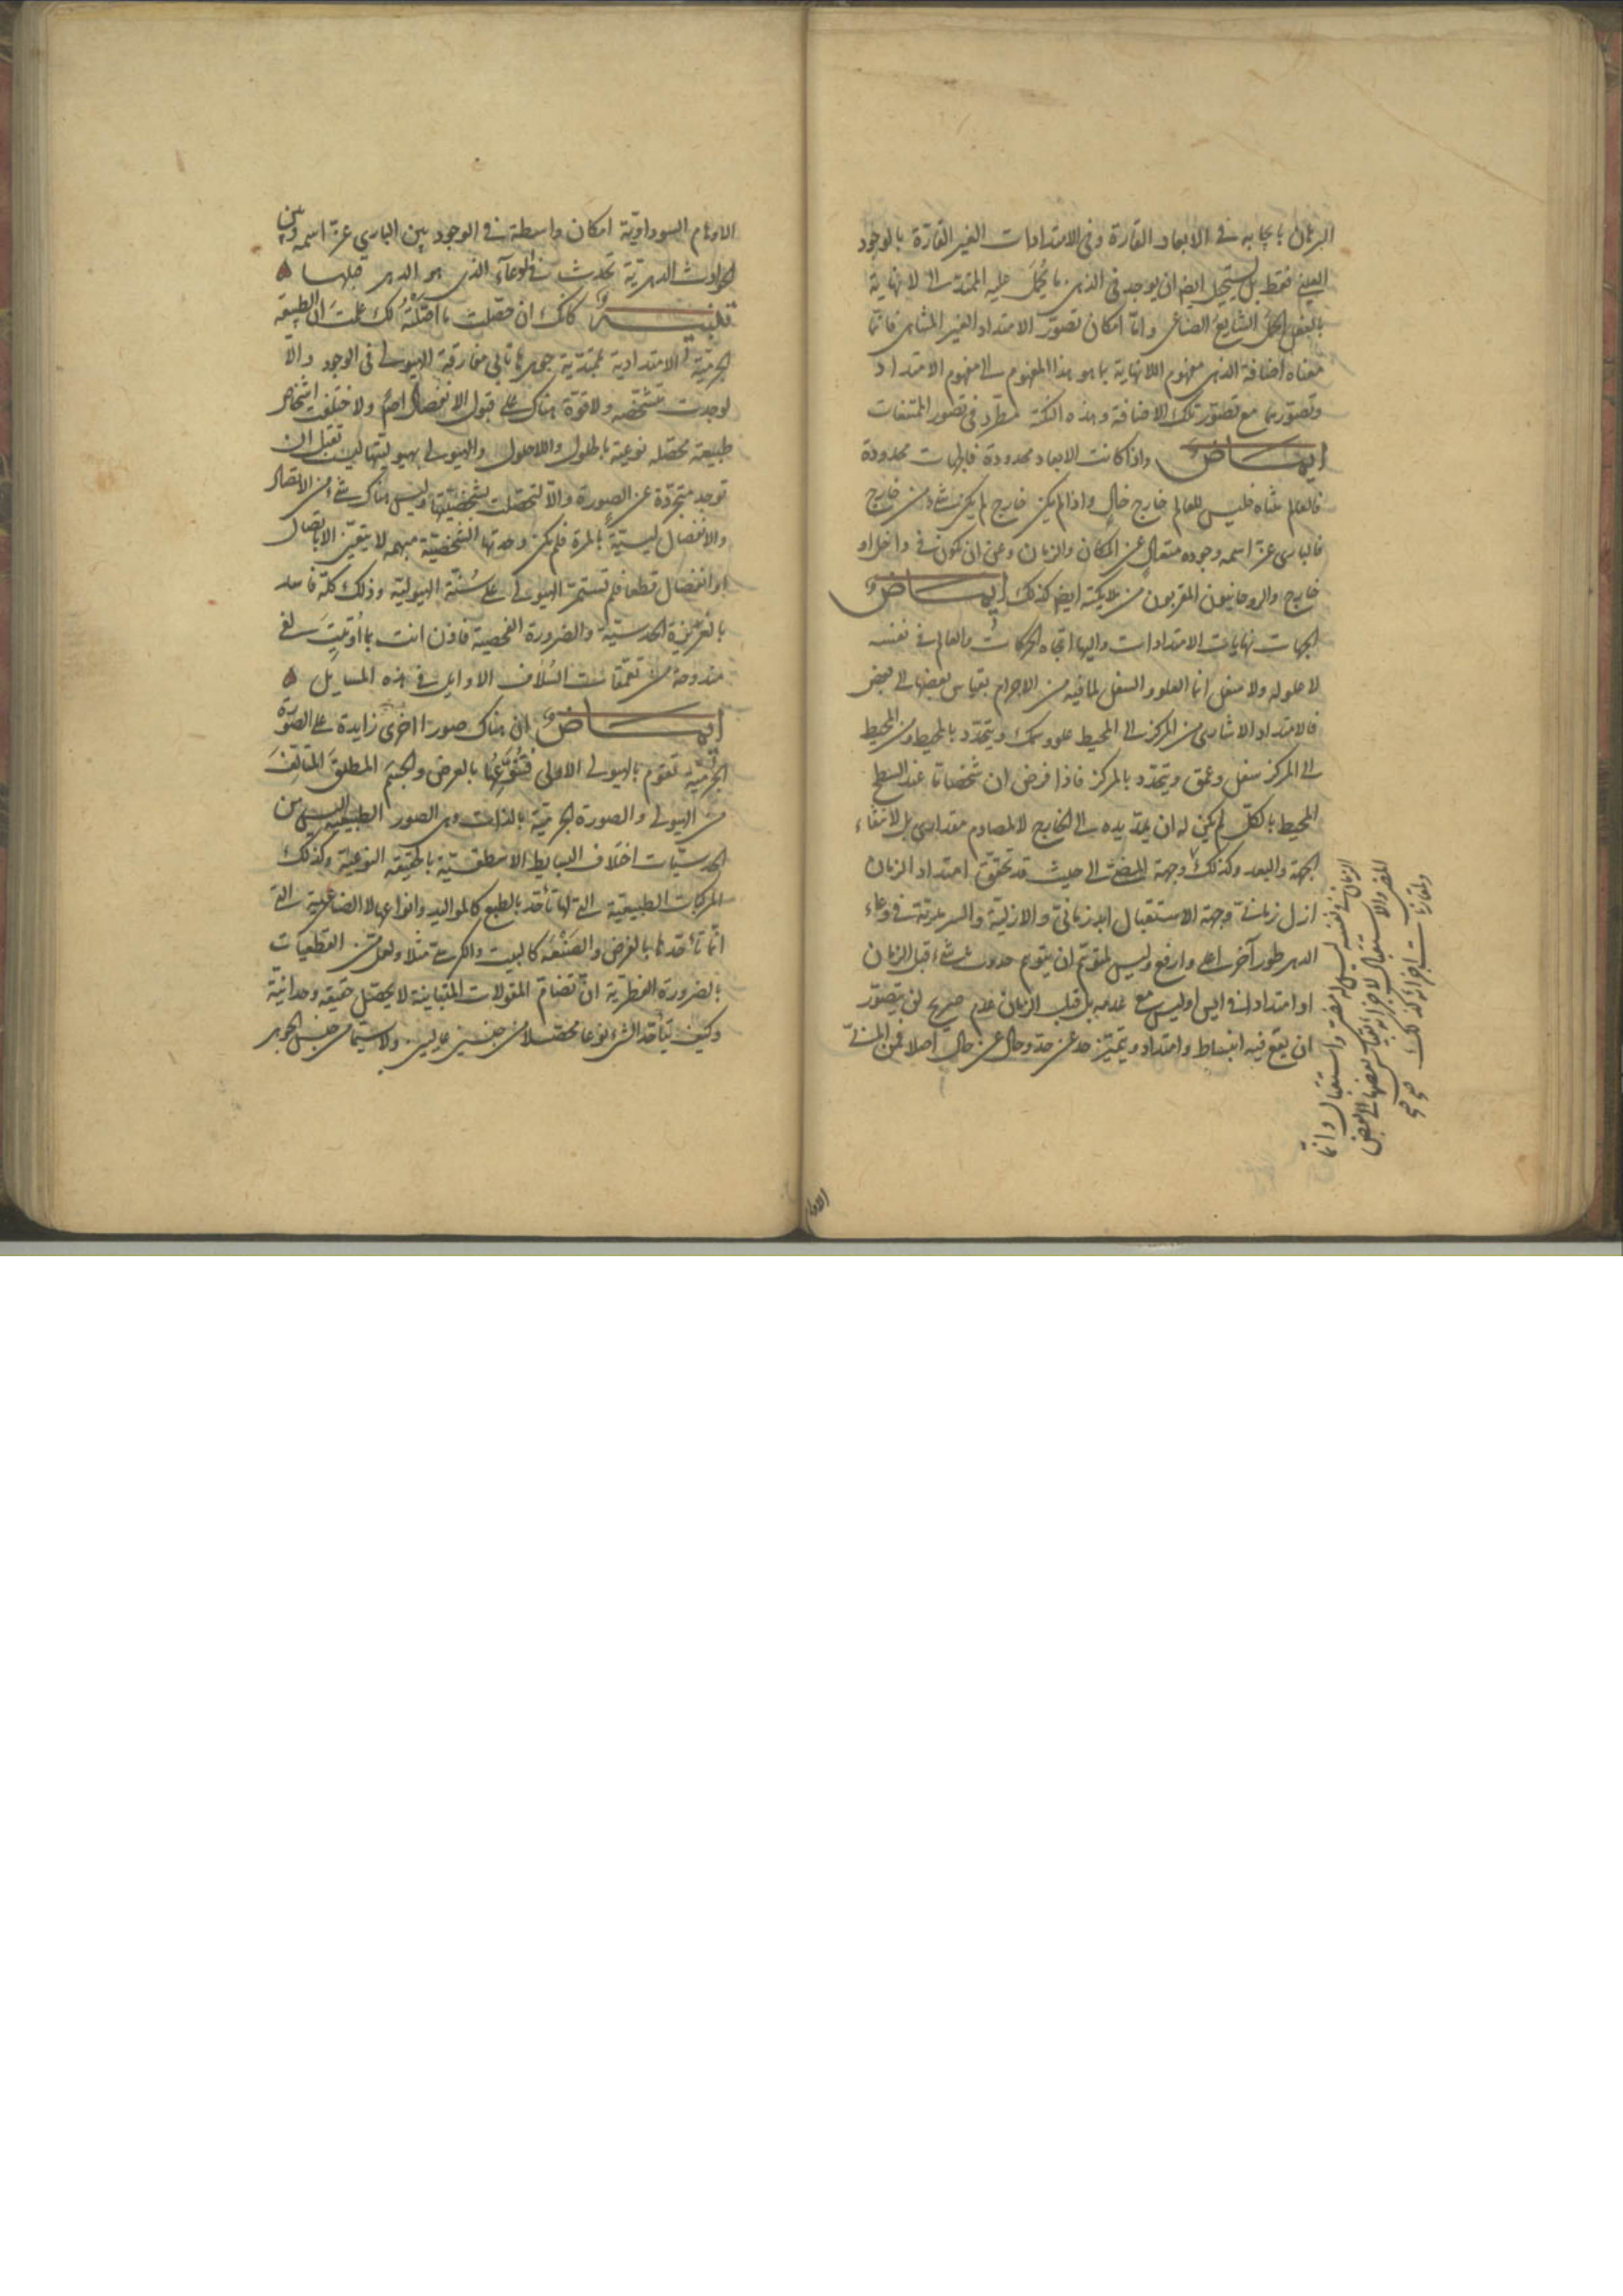 البرهان بايجابه في الابعاد القارة وفي الامتدادات الغير القارة بالوجود
العيني فقط بل يستحيل ايضا ان يوجد في الذهن ما يحمل عليه الممتد الى لا نهاية
بالفعل الحمل الشايع الصناعي وانما امكان تصور الامتداد الغير المتناهي فانما
معناه اضافة الذهن مفهوم اللانهاية بما هو هذا المفهوم الى مفهوم الامتداد
وتصورهما مع تصور تلك الاضافة وهذه النكتة مطرد في تصور الممتنعات
ايماض واذا كانت الابعاد محدودة فالجهات محدودة
فالعالم متناه فليس للعالم خارج خال واذا لم يكن خارج لم يكن شيء من خارج
فالباري عز اسمه وجوده متعال عن المكان والزمان وعن ان يكون في داخل او
خارج والروحانيون المقربون من ملايكته ايضا كذلك ايماض
الجهات نهايات الامتدادات واليها اتجاه الحركات والعالم في نفسه
لا علو له ولا سفل انما العلو والسفل لما فيه من الاجرام بقياس بعضها الى بعض
فالامتداد الاشاري من المركز الى المحيط علو وسمك ويتحدد بالمحيط ومن المحيط
الى المركز سفل وعمق ويتحدد بالمركز فاذا فرض ان شخصا ما عند السطح
المحيط بالكل لم يكن له ان يمد يده الى الخارج لا لمصادم مقداري بل لانتفاء
الجهة والبعد وكذلك وجهة المضي الى حيث قد تحقق امتداد الزمان
ازل زماني وجهة الاستقبال ابد زماني والازلية والسرمدية في وعاء
الدهر طور آخر اعلى وارفع وليس لمتوهم ان يتوهم حدوث شيء قبل الزمان
او امتدادا في ايس او ليس مع عدمه بل قبل الزمان عدم صريح لن يتصور
ان يقع فيه انبساط وامتداد ويتميز حد عن حد وحال عن حال اصلا فمن
الزمان في نفسه ليس له مضي واستقبال وانما
المضي والاستقبال لاجزائه بقياس بعضها الى البعض
ولمقارنات اجزائه كذلك
الاوهام السوداوية امكان واسطة في الوجود بين الباري عز اسمه وبين
الحوادث الدهرية تحدث في الوعاء الذي هو الدهر قبلها
تلبيه كانك ان حصلت ما اصلته لك علمت ان الطبيعة
الجرمية الامتدادية جوهرها تابى مفارقة الهيولى في الوجود والا
لوجدت متشخصه ولا قوة هناك على قبول الانفصال ولاختلفت اشخاص
طبيعة محصله نوعية بالحلول واللاحلول والهيولى بهيوليتها ليست تقبل ان
توجد متجردة عن الصورة والا لتحصلت بشخصيتها وليس هناك شيء من الاتصال
والانفصال ليسية بالمرة فلم يكن وحدتها الشخصية مبهمه لا يتعين الاتصال
او انفصال قطعا فلم تستمر الهيولى على سنة الهيولية وذلك كله فاسد
بالغريزة الحدسية والضرورة الفحصية فاذن انت بما اوتيت لفي
مندوحة من تعمقات السلاف الاوايل في هذه المسايل
ايماض ان هناك صورا اخرى زايدة على الصورة
الجرمية تقوم بالهيولى الاولى فتنوعها بالعرض والجسم المطلق المتالف
من الهيولى والصورة الجرمية بالذات وهي الصور الطبيعية اليس من
الحدسيات اختلاف البسايط الاسطقسية بالحقيقة النوعية وكذلك
المركبات الطبيعية التي لها تأحد بالطبع كالمواليد وانواعها لا الصناعية التي
انما تأحدها بالعرض والصنعة كالبيت والكرسي مثلا ولعل من القطعيات
بالضرورة الفطرية ان تضام المقولات المتباينة لا يحصل حقيقة وحدانية
وكيف يتأحد الشيء نوعا محصلا من جنسين عاليين ولا سيما من جنس الجوهر